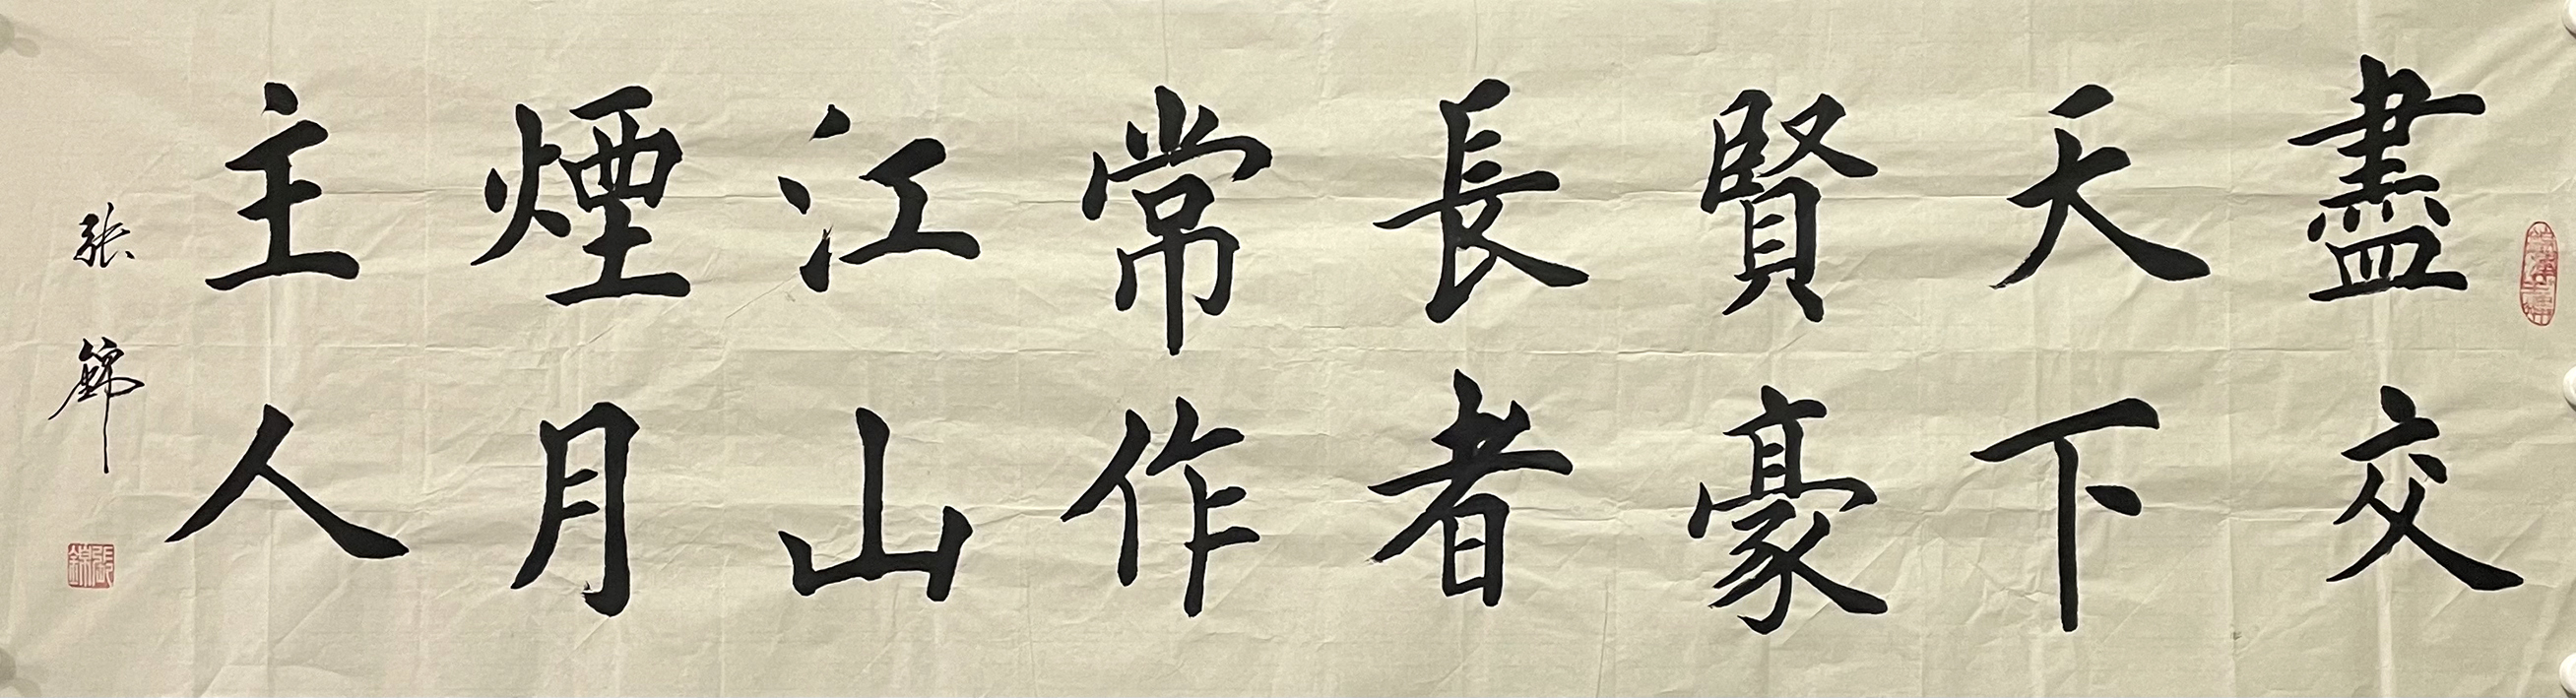 盡交
天下
賢豪
長者
常作
江山
煙月
主人
張錦
張錦